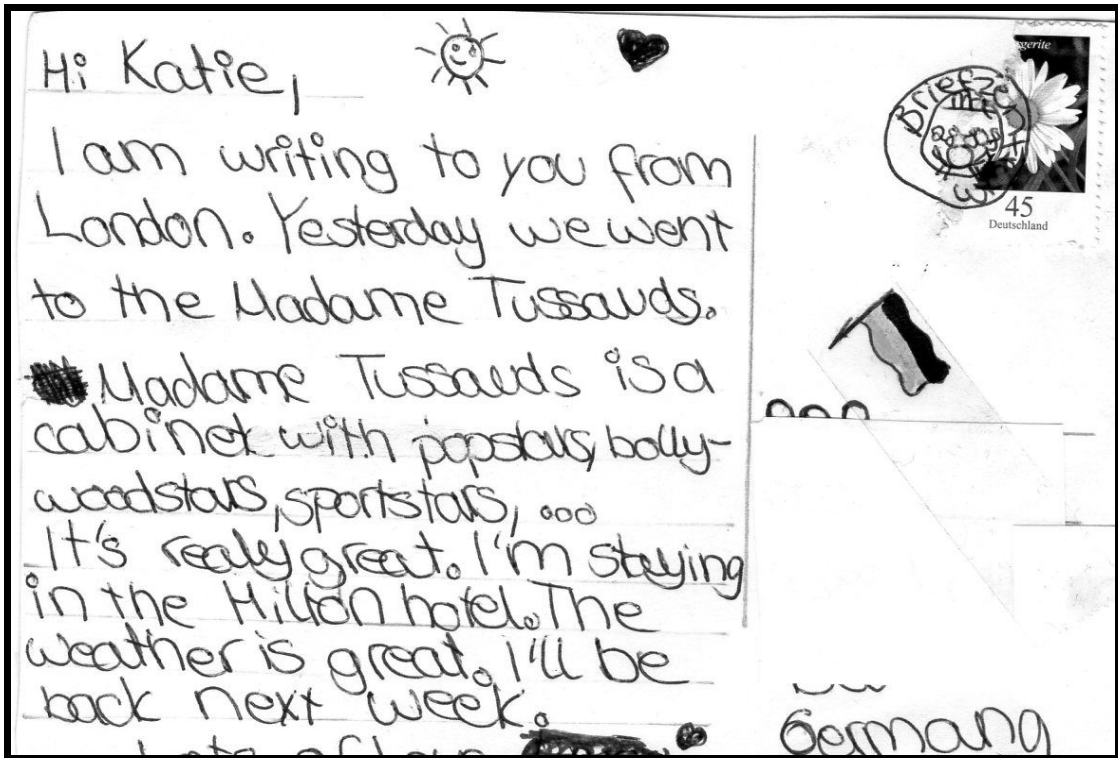 Hi Katie,
I am writing to you from
London. Yesterday we went
to the Madame Tussauds.
Madame Tussauds is a
cabinet with popstars, bolly-
woodstars, sportstars, ...
It's realy great. I'm staying
in the Hilton hotel. The
weather is great. I'll be
back next week.
Lots of love
gerite
Briefze
45
Deutschland
Germany